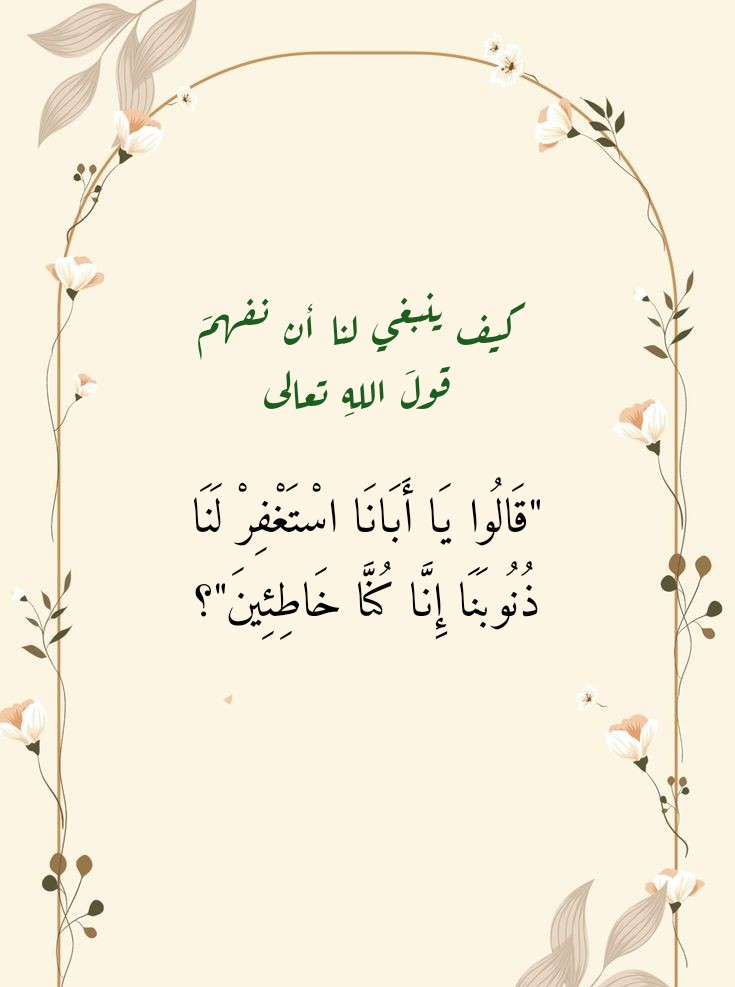 كيف ينبغي لنا أن نفهمَ
قولَ اللهِ تعالى
"قَالُوا يَا أَبَانَا اسْتَغْفِرْ لَنَا
ذُنُوبَنَا إِنَّا كُنَّا خَاطِئِينَ"؟